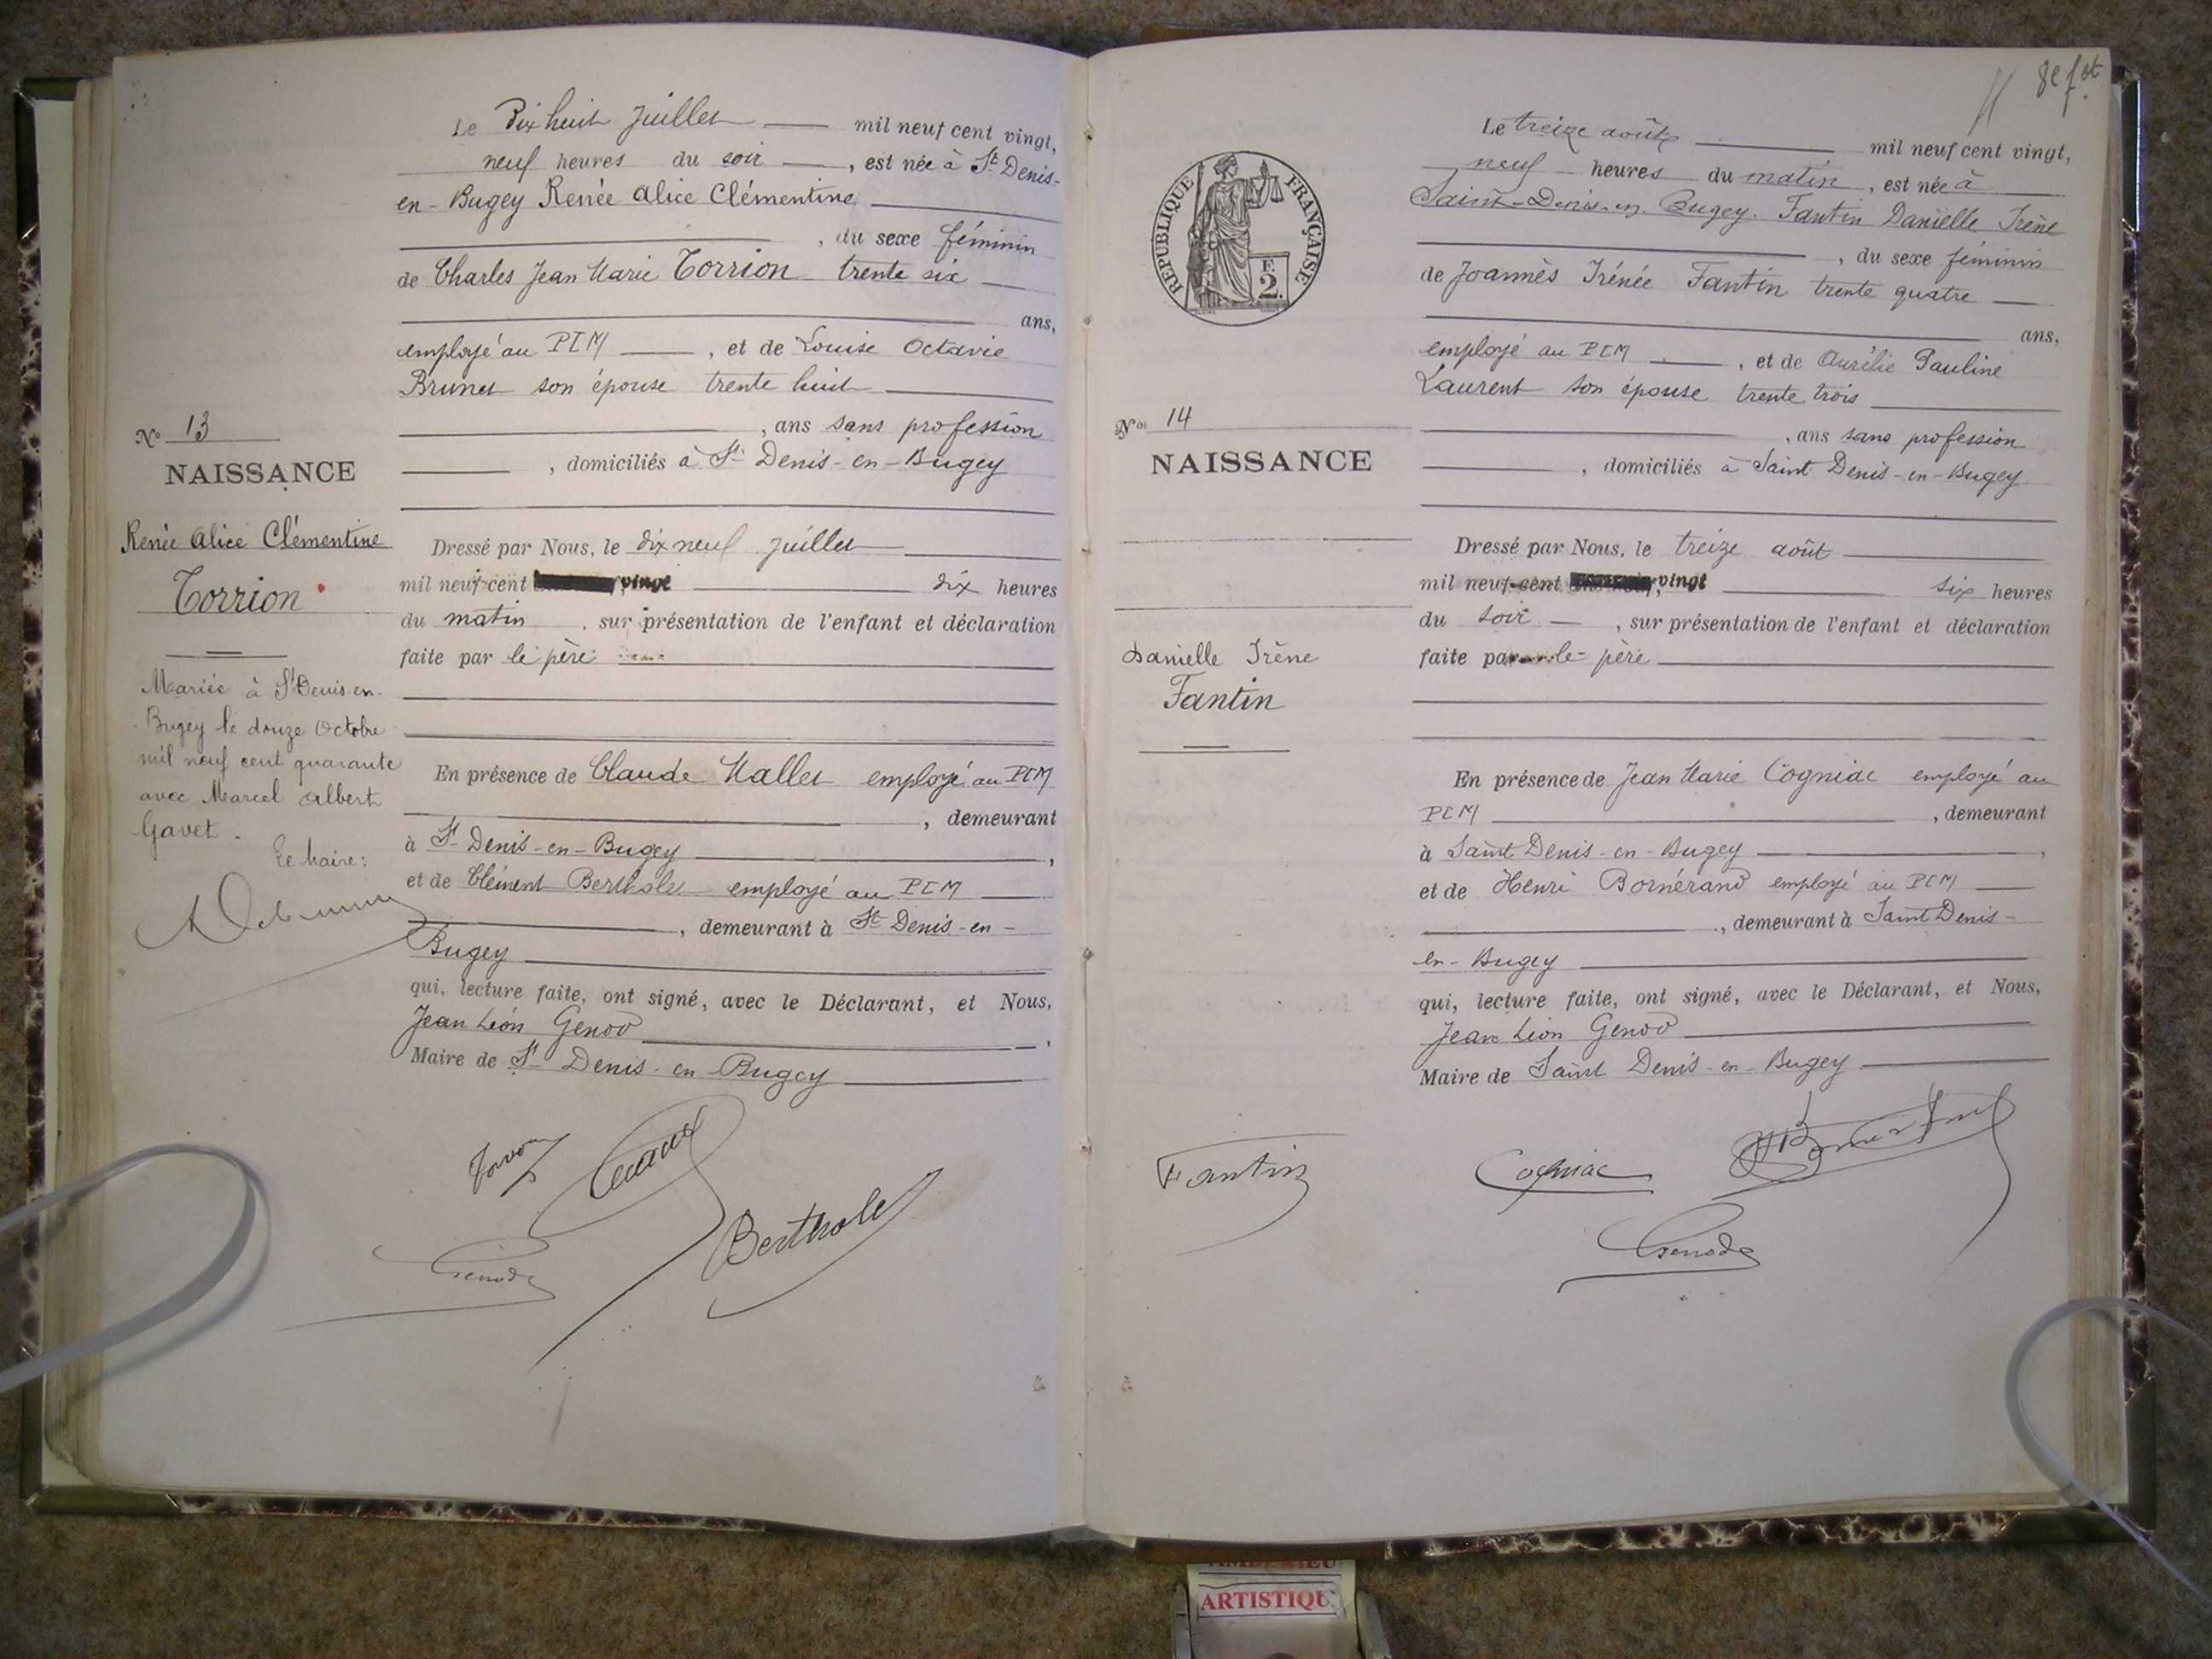 Le Dix huit Juillet mil neuf cent vingt,
neuf heures du soir, est née à St Denis-
en-Bugey Renée Alice Clémentine
, du sexe féminin
de Charles Jean Marie Torrion trente six
ans,
employé au PLM, et de Louise Octavie
Brunet son épouse trente huit
, ans sans profession
, domiciliés à St Denis-en-Bugey
No 13
NAISSANCE
Renée Alice Clémentine
Torrion
Mariée à St Denis-en-
Bugey le douze Octobre
mil neuf cent quarante
avec Marcel Albert
Gavet.
Le Maire:
Dressé par Nous, le dix neuf Juillet
mil neuf cent vingt dix heures
du matin, sur présentation de l'enfant et déclaration
faite par le père
En présence de Claude Mallet employé au PLM
, demeurant
à St Denis-en-Bugey,
et de Clément Bertholet employé au PLM
, demeurant à St Denis-en-
Bugey
qui, lecture faite, ont signé, avec le Déclarant, et Nous,
Jean Léon Genod,
Maire de St Denis-en-Bugey
Genod
Berthole
8e fet
REPUBLIQUE FRANÇAISE
F.
2.
Le treize août mil neuf cent vingt,
neuf heures du matin, est née à
Saint-Denis-en-Bugey. Fantin Danielle Irène
, du sexe féminin
de Joannès Irénée Fantin trente quatre
ans,
employé au PLM, et de Aurélie Pauline
Laurent son épouse trente trois
, ans sans profession
, domiciliés à Saint Denis-en-Bugey
No 14
NAISSANCE
Danielle Irène
Fantin
Dressé par Nous, le treize août
mil neuf cent vingt six heures
du soir, sur présentation de l'enfant et déclaration
faite par le père
En présence de Jean Marie Cogniac employé au
PLM, demeurant
à Saint Denis-en-Bugey,
et de Henri Bornérand employé au PLM
, demeurant à Saint Denis-
en-Bugey
qui, lecture faite, ont signé, avec le Déclarant, et Nous,
Jean Léon Genod
Maire de Saint Denis-en-Bugey
Fantin
Cogniac
Genod
ARTISTIQU